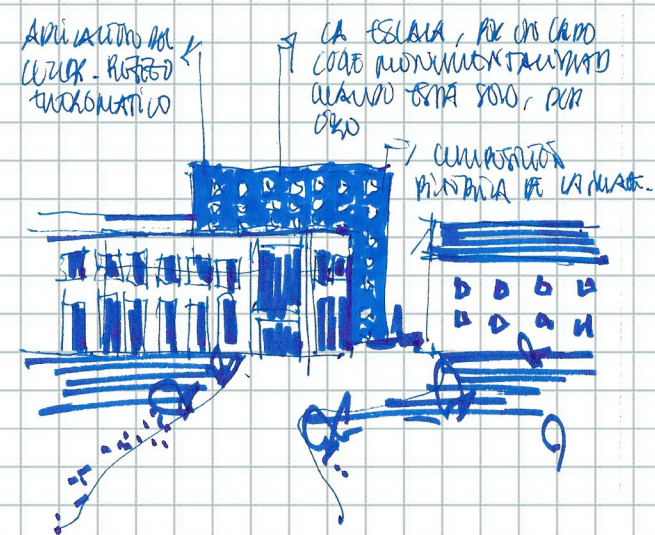 APLICACIÓN DEL
COLOR - 
CROMÁTICO
LA ESCALA, POR UN LADO
COGE MONUMENTALIDAD
CUANDO ESTÁ SOLO, POR
OTRO
COMPOSICIÓN
PICTÓRICA DE LA IMAGE.